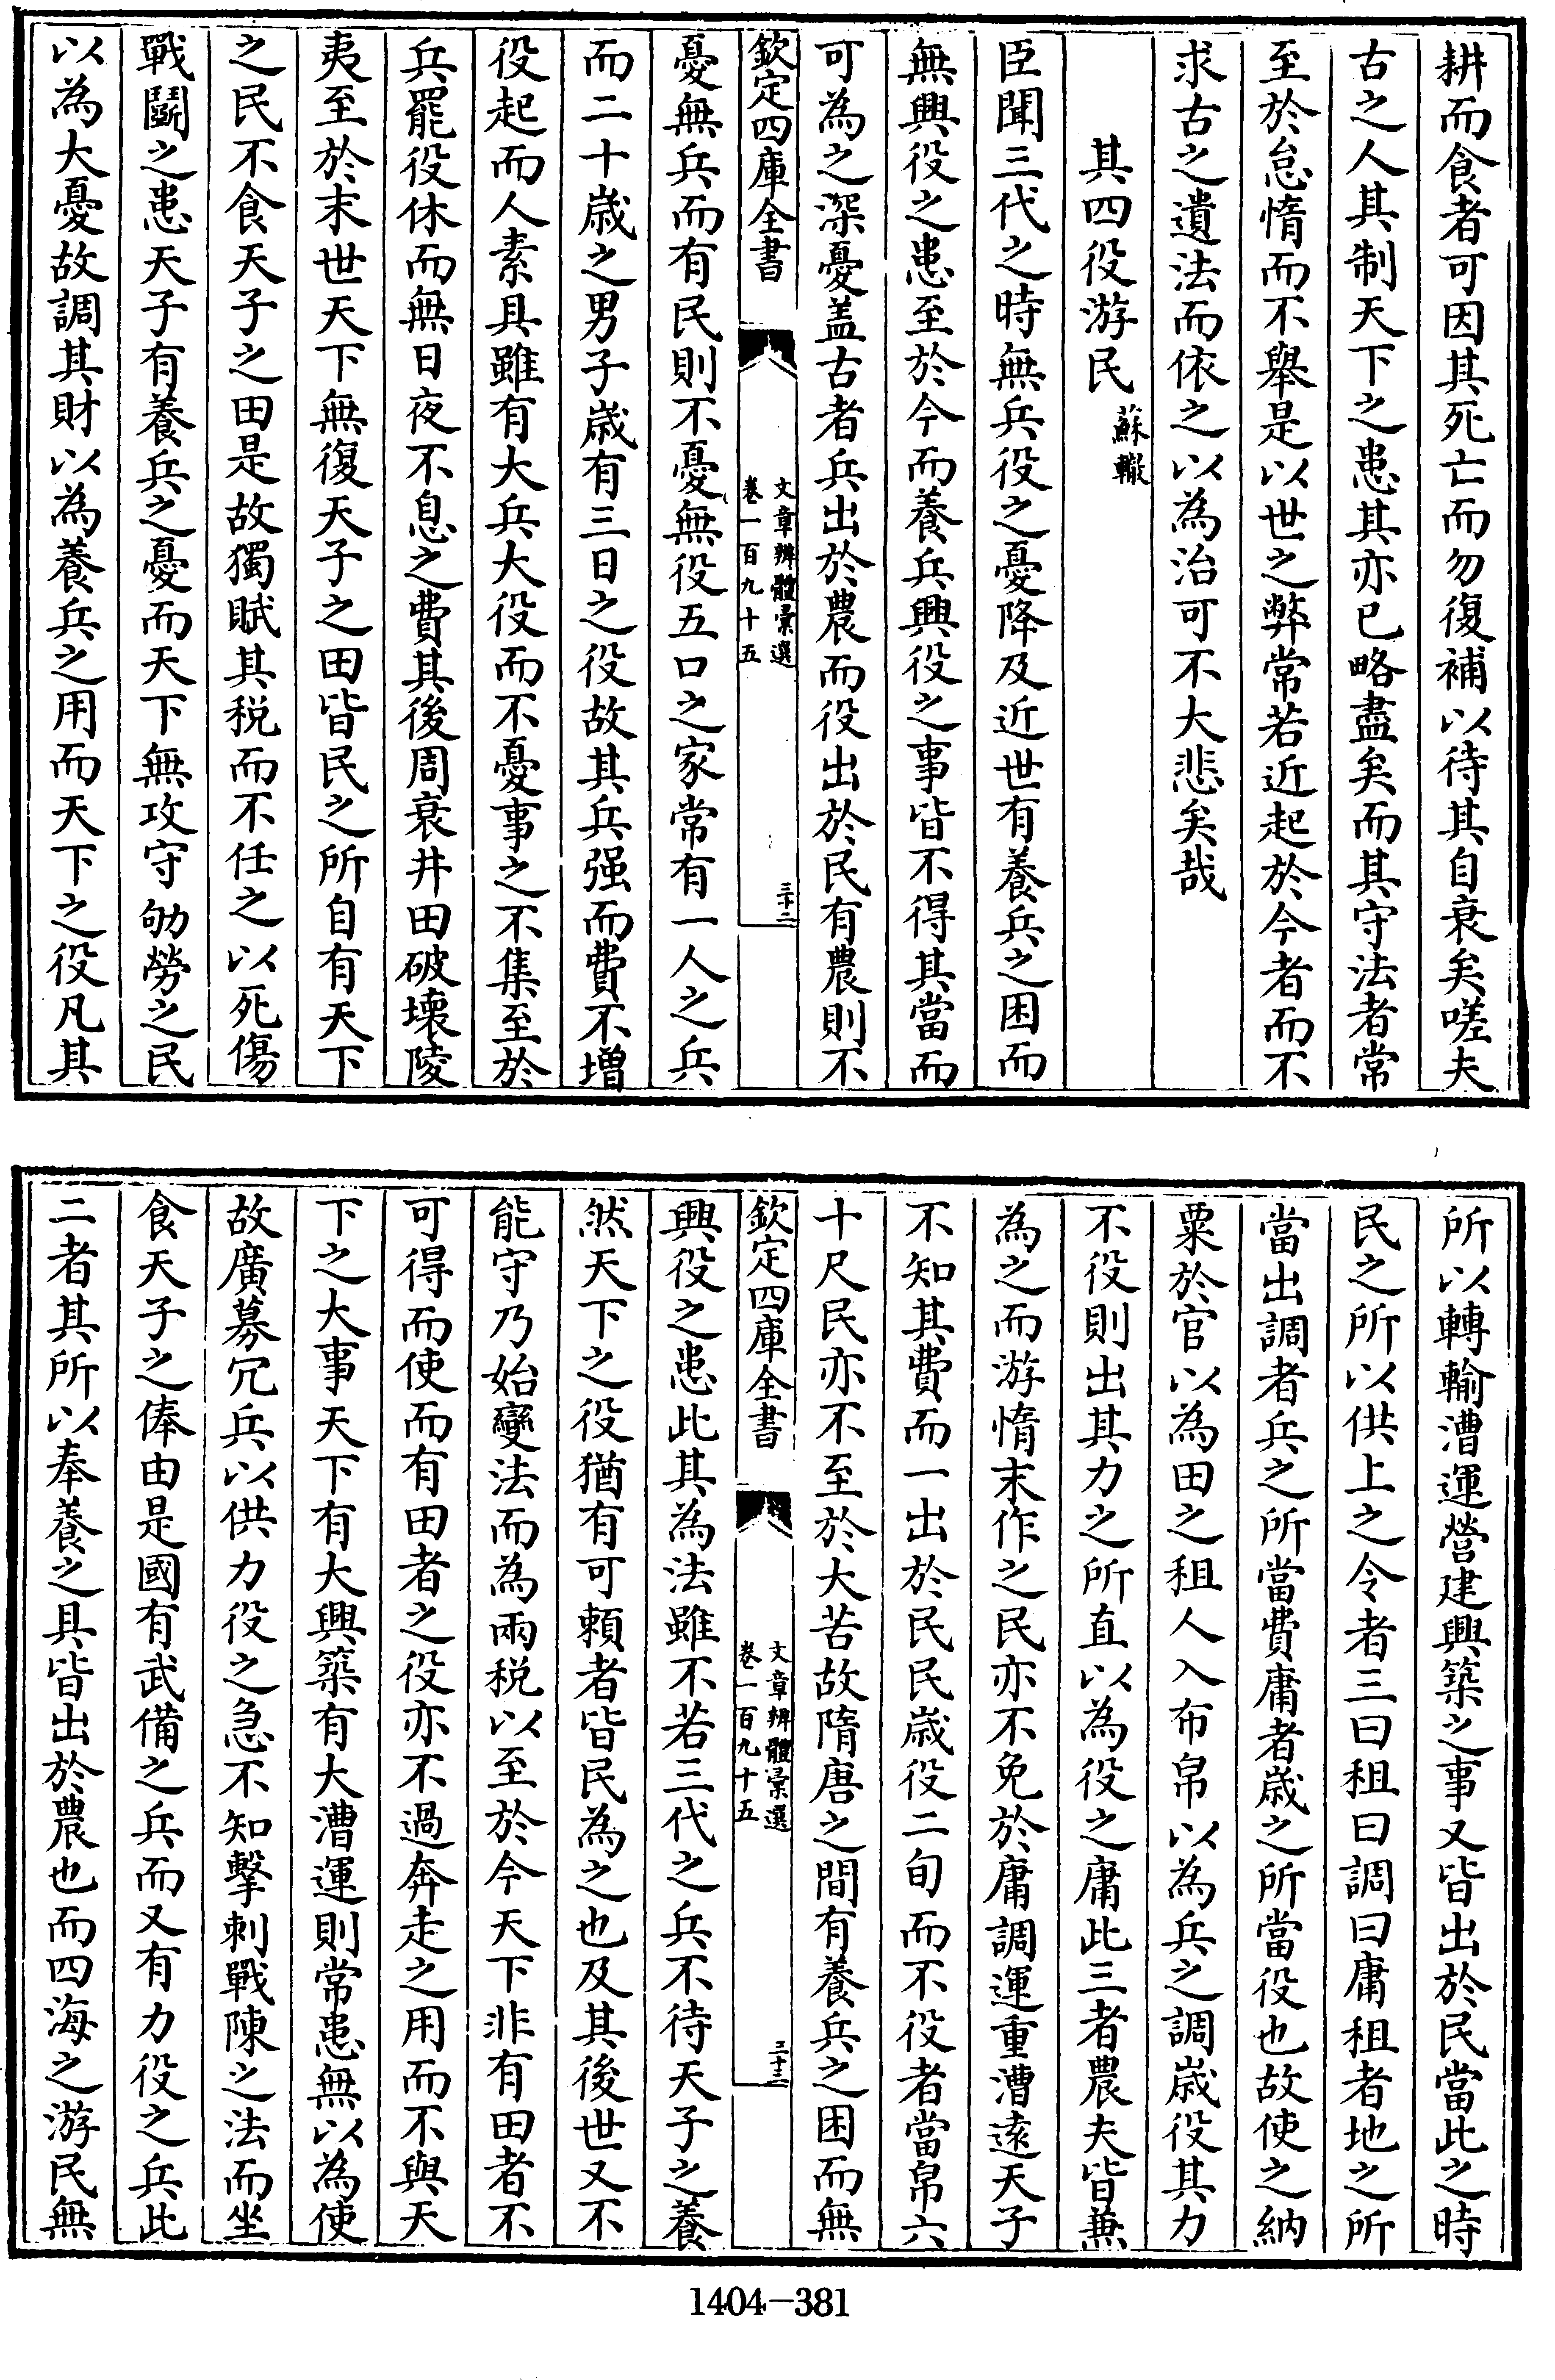 耕而食者可因其死亡而勿復補以待其自衰矣嗟夫
古之人其制天下之患其亦已略盡矣而其守法者常
至於怠惰而不舉是以世之弊常若近起於今者而不
求古之遺法而依之以為治可不大悲矣哉
其四役游民 蘇轍
臣聞三代之時無兵役之憂降及近世有養兵之困而
無興役之患至於今而養兵興役之事皆不得其當而
可為之深憂盖古者兵出於農而役出於民有農則不
欽定四庫全書
文章辨體彚選
卷一百九十五
三十二
憂無兵而有民則不憂無役五口之家常有一人之兵
而二十歲之男子歲有三日之役故其兵强而費不增
役起而人素具雖有大兵大役而不憂事之不集至於
兵罷役休而無日夜不息之費其後周衰井田破壞陵
夷至於末世天下無復天子之田皆民之所自有天下
之民不食天子之田是故獨賦其税而不任之以死傷
戰鬭之患天子有養兵之憂而天下無攻守劬勞之民
以為大憂故調其財以為養兵之用而天下之役凡其
所以轉輸漕運營建興築之事又皆出於民當此之時
民之所以供上之令者三曰租曰調曰庸租者地之所
當出調者兵之所當費庸者歲之所當役也故使之納
粟於官以為田之租人入布帛以為兵之調歲役其力
不役則出其力之所直以為役之庸此三者農夫皆兼
為之而游惰末作之民亦不免於庸調運重漕遠天子
不知其費而一出於民民歲役二旬而不役者當帛六
十尺民亦不至於大苦故隋唐之間有養兵之困而無
欽定四庫全書
文章辨體彚選
卷一百九十五
三十三
興役之患此其為法雖不若三代之兵不待天子之養
然天下之役猶有可賴者皆民為之也及其後世又不
能守乃始變法而為兩税以至於今天下非有田者不
可得而使而有田者之役亦不過奔走之用而不與天
下之大事天下有大興築有大漕運則常患無以為使
故廣募冗兵以供力役之急不知擊刺戰陳之法而坐
食天子之俸由是國有武備之兵而又有力役之兵此
二者其所以奉養之具皆出於農也而四海之游民無
1404-381